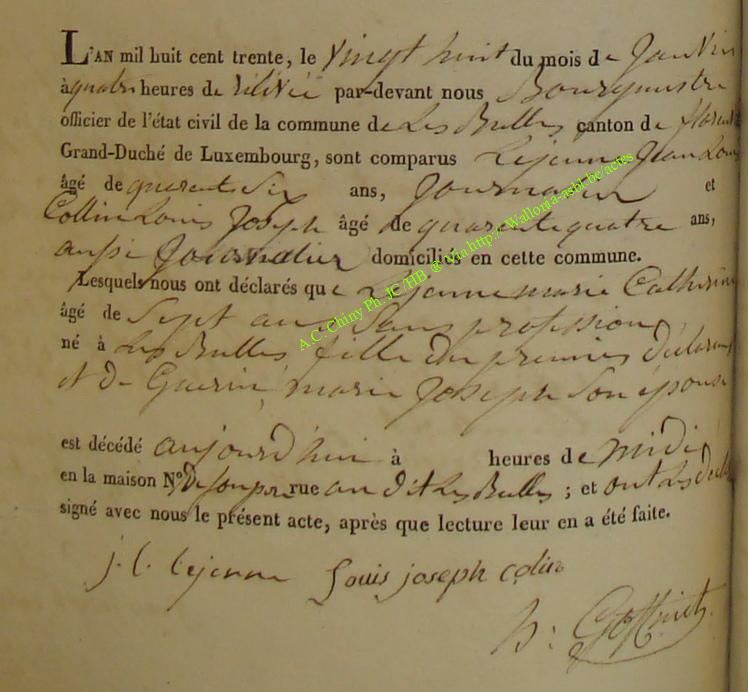 L'AN mil huit cent trente, le vingt huit du mois de Janvier
à quatre heures de rélévée par-devant nous Bourgmestre
officier de l'état civil de la commune de Les Bulles canton de
Grand-Duché de Luxembourg, sont comparus Lejeune Jean Louis
âgé de quarente Six ans, Journalier et
Collin Louis Joseph âgé de quarente quatre ans,
aussi Journalier domiciliés en cette commune.
Lesquels nous ont déclarés que Lejeune marie Catherine
âgé de Sept ans Sans profession
né à Les Bulles fille du premier déclarant
et de Guerin, marie Joseph Son épouse
est décédé aujourd'hui à heures de midi
en la maison N° rue au dit Les Bulles ; et ont Les
signé avec nous le présent acte, après que lecture leur en a été faite.
j. l. lejeune Louis joseph colin
h: Goffinet
A.C. Chiny Ph. JC /HB. © via http://Wallonia-asbl-be/actes